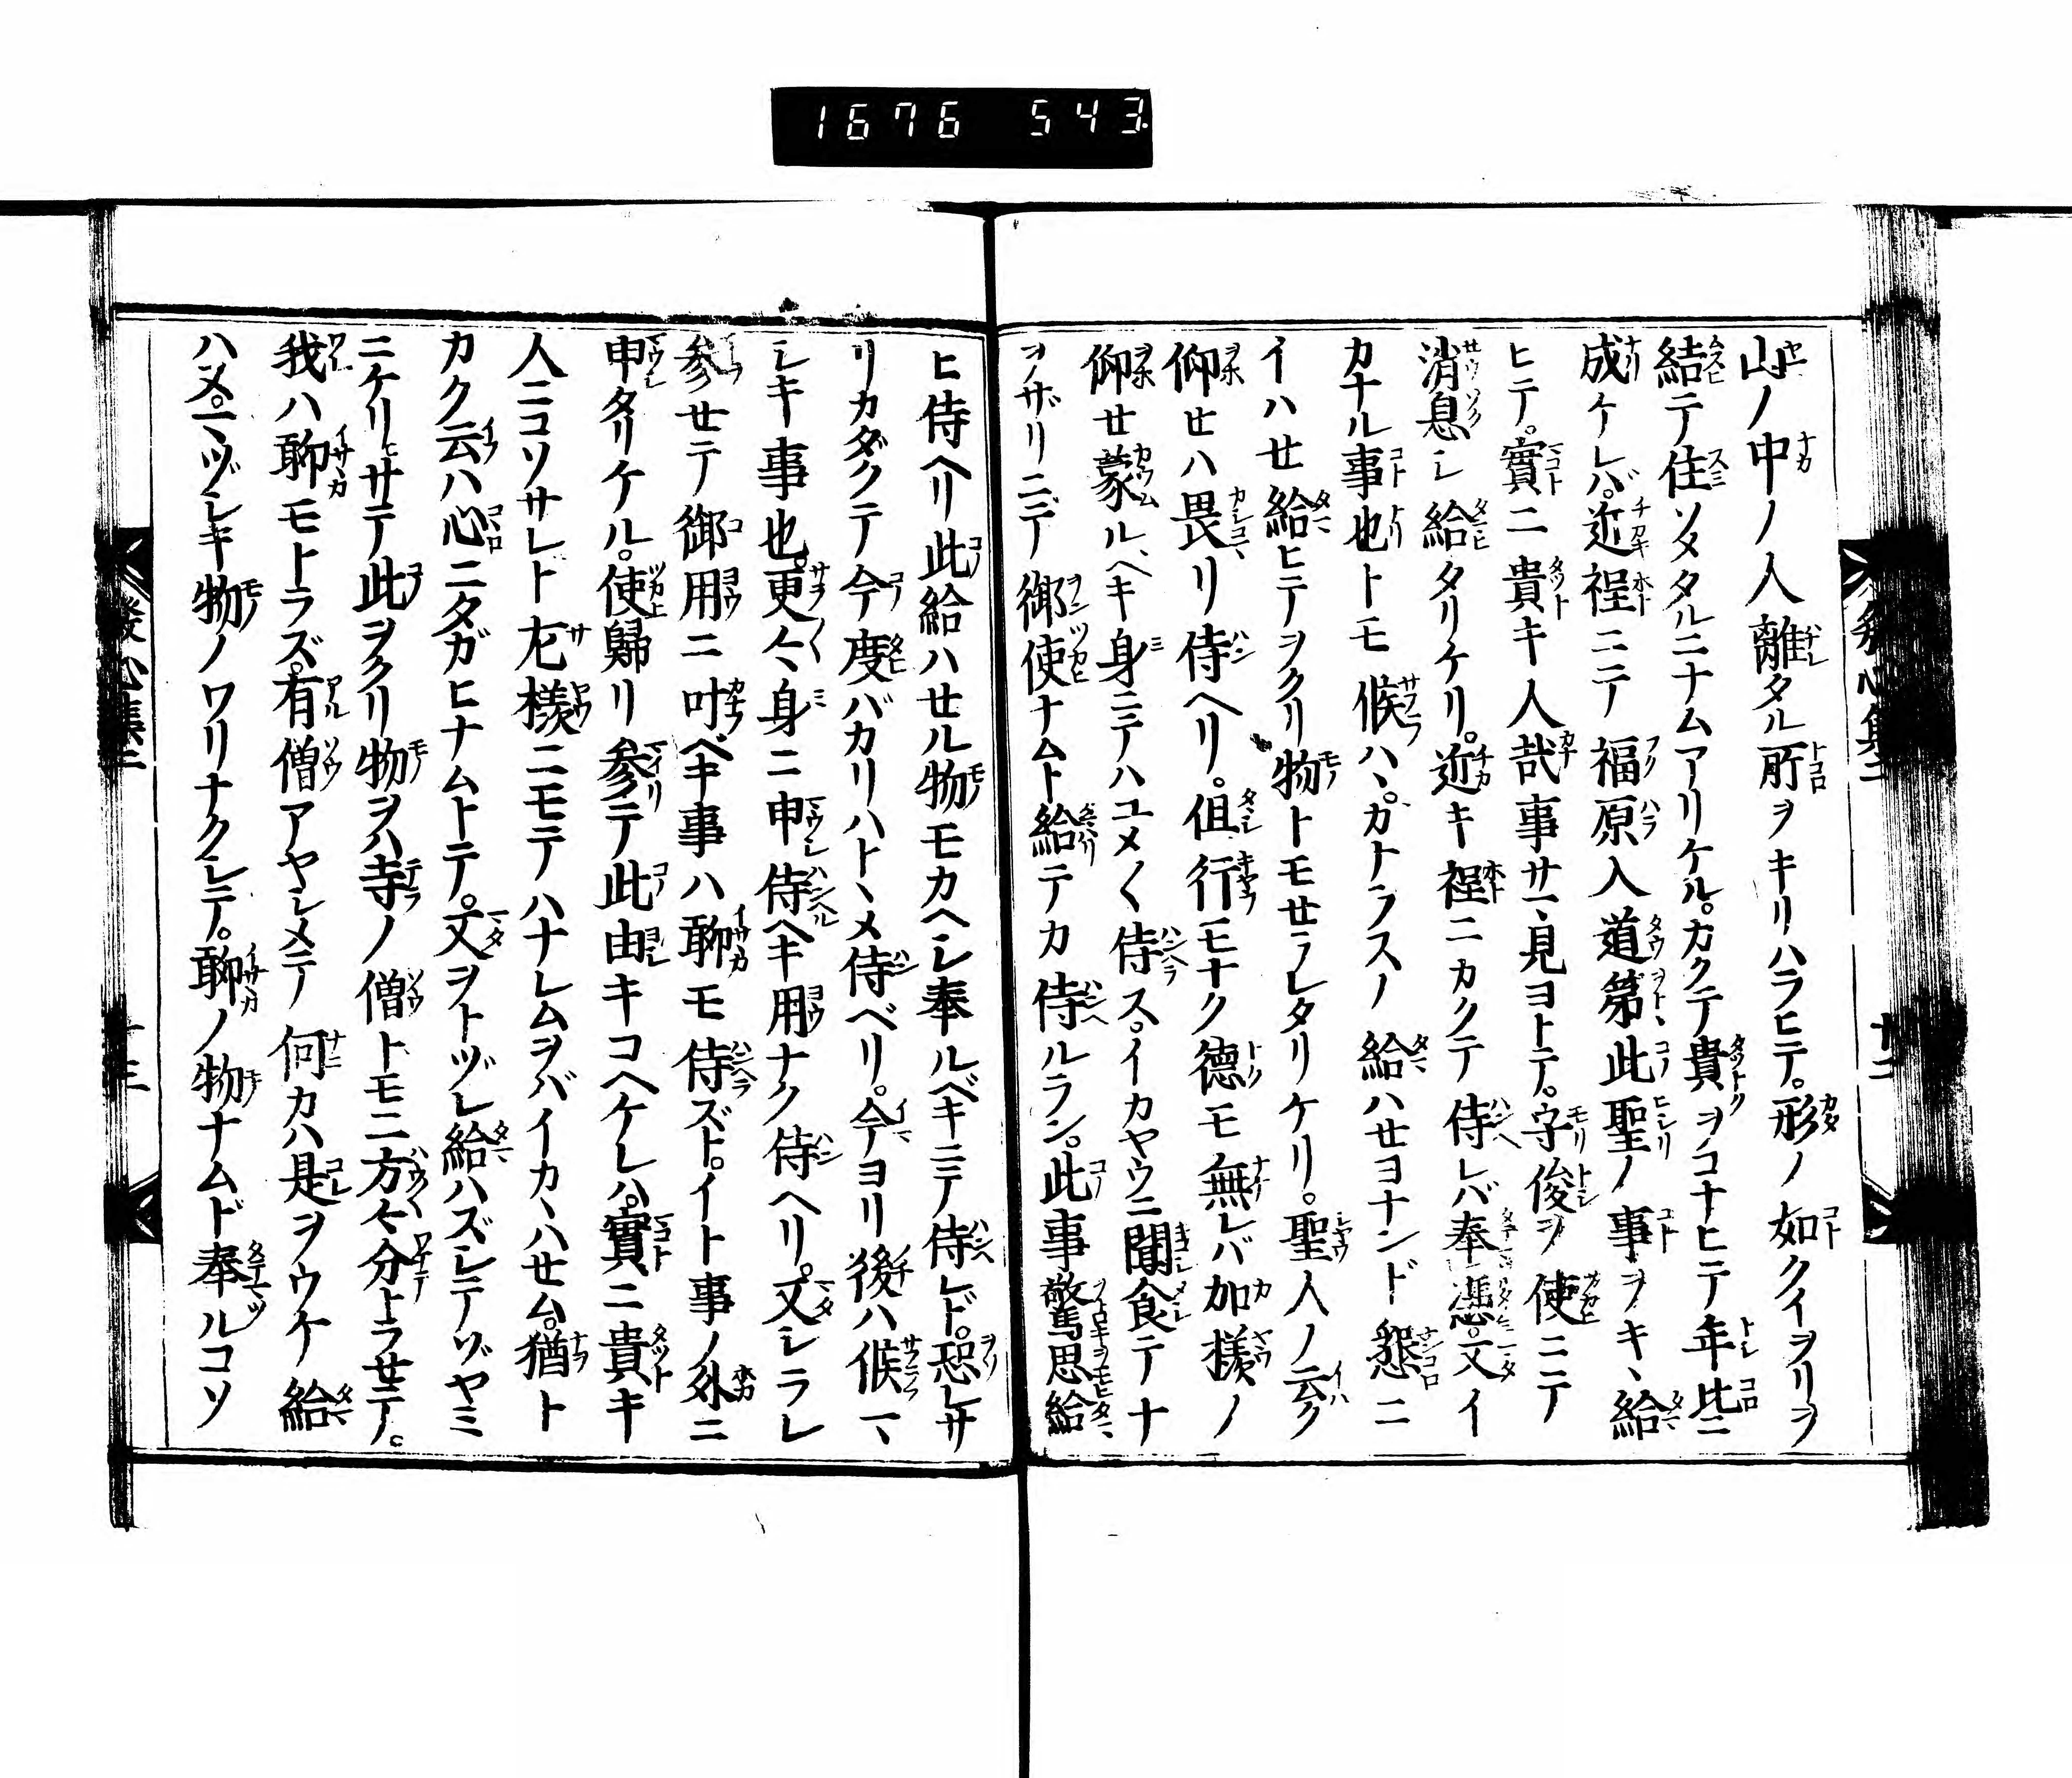 1676 543
山ノ中ノ人離タル所ヲキリハラヒテ。形ノ如クイヲリヲ
結テ住ソメタルニナムアリケル。カクテ貴ヲコナヒテ年比ニ
成ケレバ。近程ニテ福原入道大第此聖ノ事ヲキヽ給
ヒテ。實ニ貴キ人哉事サマ見ヨトテ。守俊ヲ使ニテ
消息シ給タリケリ。近キ程ニカクテ侍レバ奉憑。又イ
カナル事也トモ候ハヽ。カナラスノ給ハセヨナンド懇ニ
イハセ給ヒテヲクリ物トモせラレタリケリ。聖人ノ云ク
仰セハ畏リ侍ヘリ。但行モナク德モ無レバ加樣ノ
仰せ蒙ルヘキ身ニテハユメ〱侍ス。イカヤウニ聞食テナ
ヲザリニテ御使ナムト給テカ侍ルラン。此事驚思給
ヒ侍ヘリ此給ハせル物モカヘシ奉ルベキニテ侍レド。恐レサ
リカダクテ今度バカリハトヽメ侍ベリ。今ヨリ後ハ候マヽ
シキ事也。更々身ニ申侍ヘキ用ナク侍ヘリ。又シラレ
参せテ御用ニ叶ベキ事ハ聊モ侍ズト。イト事ノ外ニ
申タリケル。使歸リ参テ此由キコヘケレハ。實ニ貴キ
人ニコソサレト左樣ニモテハナレムヲバイカヽハせム。猶ト
カク云ハ心ニタガヒナムトテ。又ヲトヅレ給ハズシテヅヤミ
ニケリサテ此ヲクリ物ヲハ寺ノ僧トモニ方々分トラせテ。
我ハ聊モトラズ。有僧アヤシメテ何カハ是ヲウケ給
ハヌ。マヅシキ物ノワリナクシテ。聊ノ物ナムド奉ルコソ
發心集三
十三